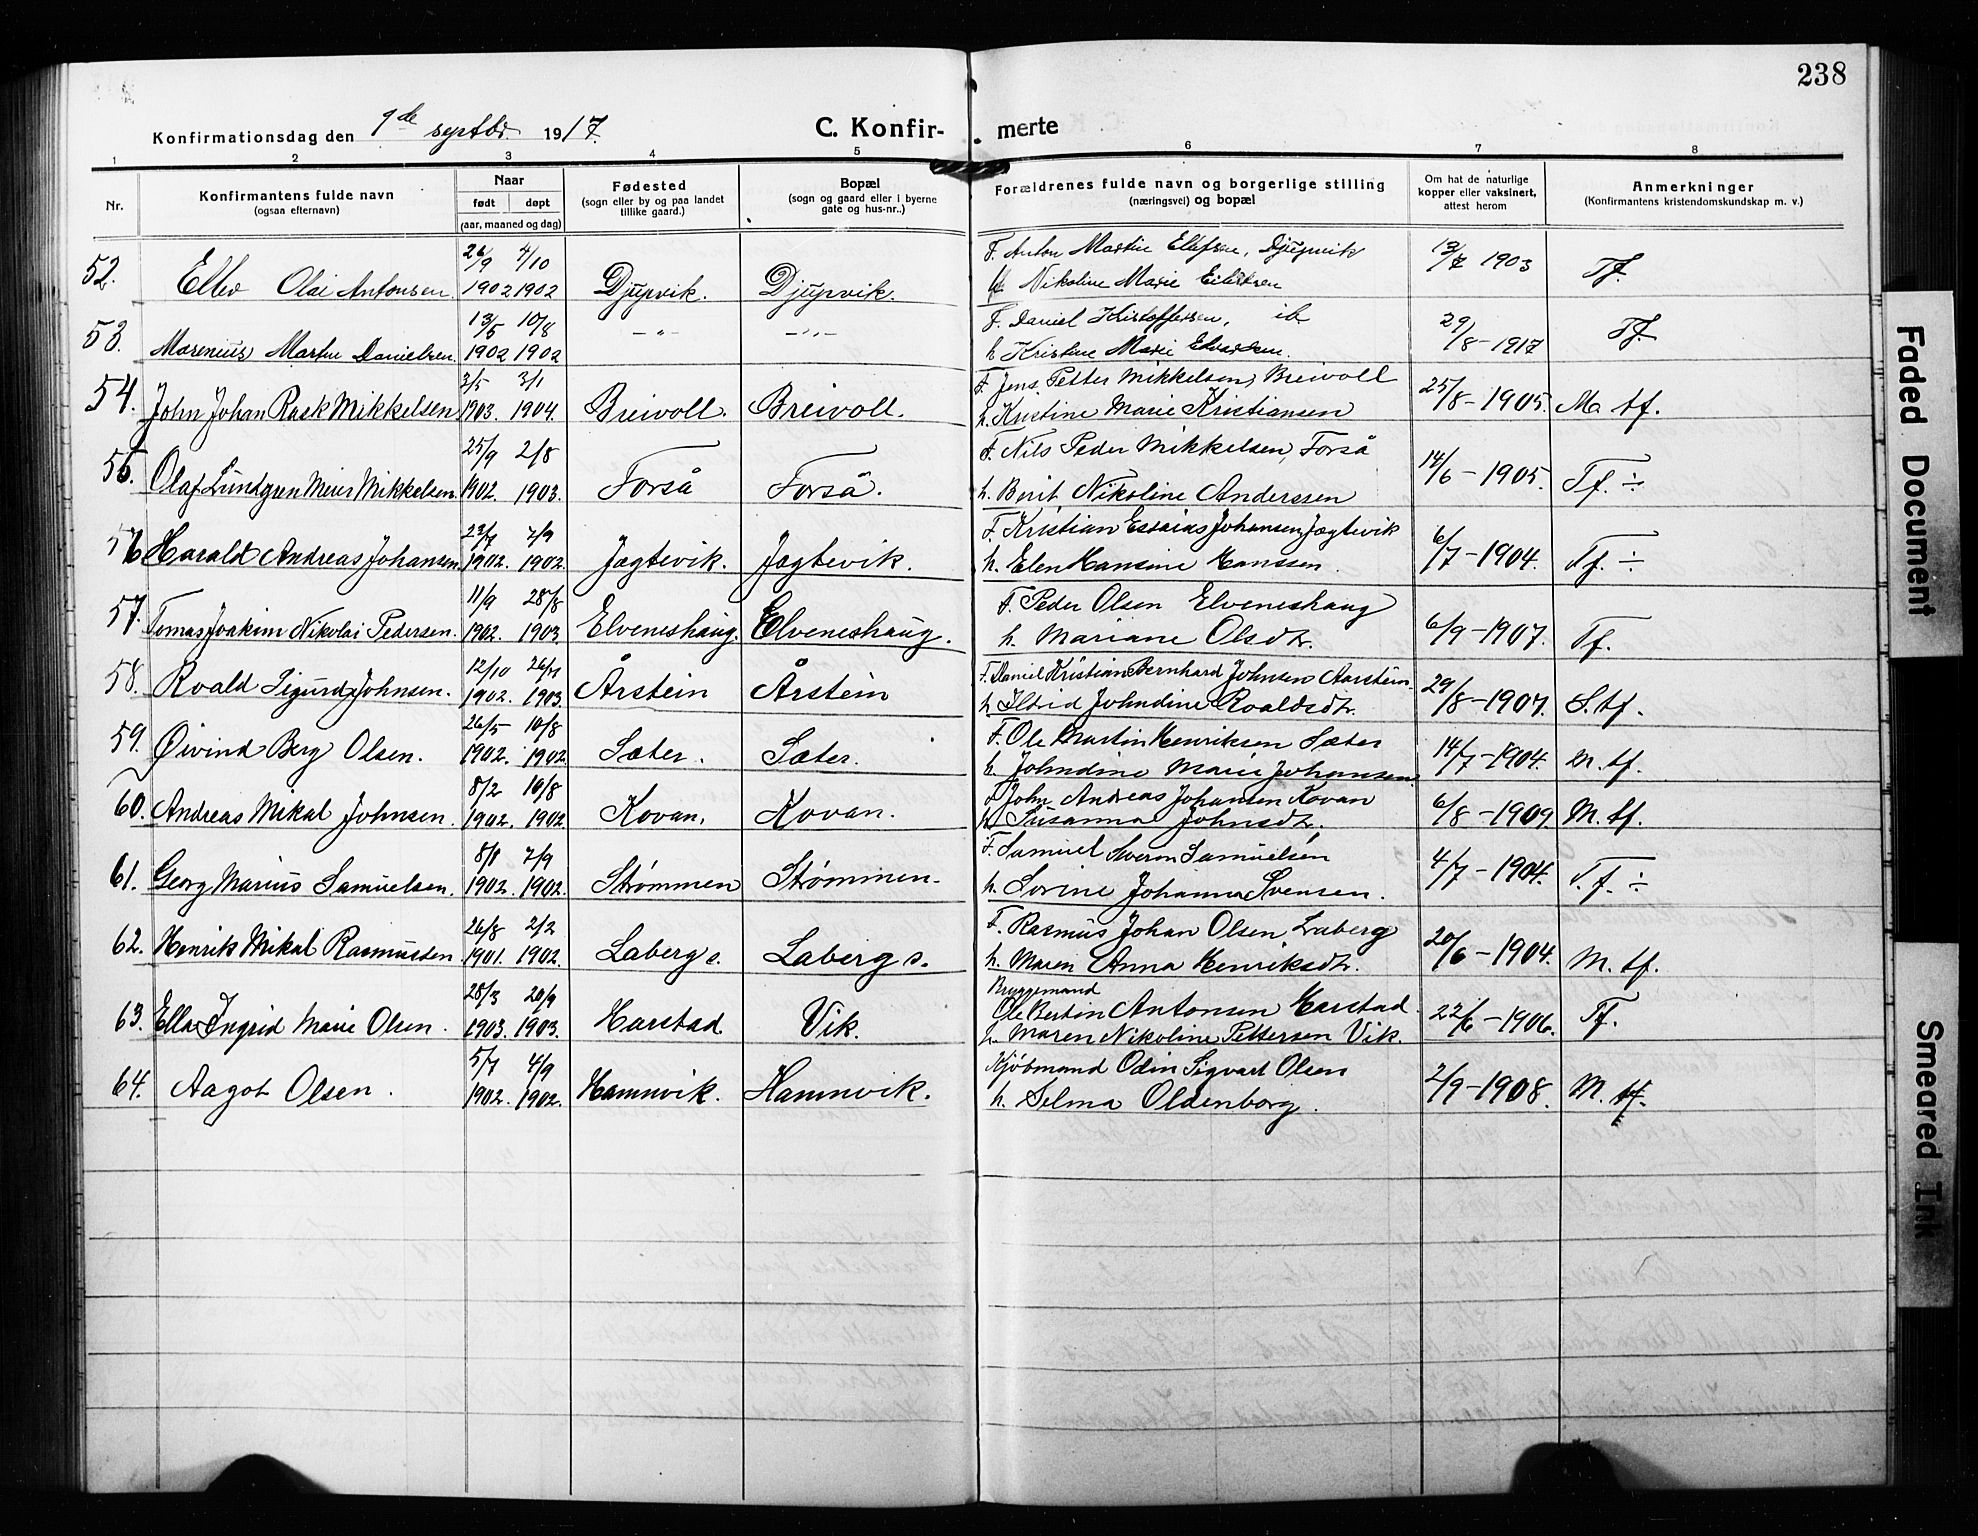 238
Konfirmationsdag den 9de septbr. 1917.
C. Konfir- merte
1 2 3 4 5 6 7 8
Nr.
Konfirmantens fulde navn
(ogsaa efternavn)
Naar
født døpt
(aar, maaned og dag)
Fødested
(sogn eller by og paa landet
tillike gaard.)
Bopæl
(sogn og gaard eller i byerne
gate og hus-nr..)
Forældrenes fulde navn og borgerlige stilling
(næringsvei) og bopæl
Om hat de naturlige
kopper eller vaksinert,
attest herom
Anmerkninger
(Konfirmantens kristendomskundskap m. v.)
26/9 4/10 F. Anton Martin Elefsen, Djupvik
52. Ellev Olai Antonsen. 1902 1902 Djupvik. Djupvik. Nikoline Marie Eilertsen 13/7 1903 Tf.
13/5 10/8 F. Daniel Kristoffersen, ib
53. Marenius Martin Danielsen. 1902 1902 -"- -"- h Kristine Marie Edvardsen. 29/8-1917 Tf.
3/5 3/1 F. Jens Petter Mikkelsen, Breivoll
54. John Johan Rask Mikkelsen 1903. 1904. Breivoll. Breivoll. h. Kristine Marie Kristiansen 25/8-1905. M. tf.
25/9 2/8 F. Nils Peder Mikkelsen, Forså
55. Olaf Lundgren Meier Mikkelsen. 1902. 1903. Forså Forså. h. Berit Nikoline Anderssen 14/6-1905. Tf. ÷
23/7 7/9 F. Kristian Essaias Johansen, Jægtevik
56 Harald Andreas Johansen. 1902. 1902. Jægtevik. Jægtevik. h. Elen Hansine Hanssen. 6/7-1904. Tf. ÷
11/9 28/8 F. Peder Olsen Elveneshaug
57. Tomas Joakim Nikolai Pedersen. 1902. 1903. Elveneshaug. Elveneshaug. h. Mariane Olsdtr. 6/9-1907. Tf.
12/10 26/7 F. Daniel Kristian Bernhard Johnsen Aarstein.
58. Roald Sigurd Johnsen. 1902. 1903. Årstein Årstein h. Ildrid Johndine Roaldsdtr. 29/8-1907. S. tf.
26/5 10/8 F. Ole Martin Henriksen Sæter
59. Øivind Berg Olsen. 1902. 1902. Sæter. Sæter. h. Johndine Marie Johansen 14/7-1904. M. tf.
8/2 10/8 F John Andreas Johansen Kovan
60. Andreas Mikal Johnsen. 1902. 1902. Kovan. Kovan. h. Susanna Johnsdtr. 6/8-1909. M. tf.
8/8 7/9 F. Samuel Sveron Samuelsen
61. Georg Marius Samuelsen. 1902. 1902. Strømmen Strømmen. h. Lorine Johanna Svensen. 4/7-1904. T. f. ÷
26/8 2/2 F. Rasmus Johan Olsen Laberg
62. Henrik Mikal Rasmussen 1901. 1902. Laberg s. Laberg s. h. Maren Anna Henriksdtr. 20/6-1904. M. tf.
28/3 20/9 Bryggemand
Ole Bertin Antonsen Harstad.
63. Ella Ingrid Marie Olsen. 1903. 1903. Harstad. Vik. h. Maren Nikoline Pettersen Vik. 22/6-1906. Tf.
5/7 4/9 Kjøbmand Odin Sigvart Olsen
64. Aagot Olsen. 1902. 1902. Hamnvik. Hamnvik. h. Selma Oldenborg. 2/9-1908. M. tf.
Faded Document
Smeared Ink